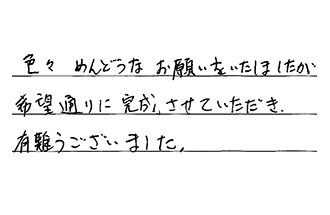 色々 めんどうな お願いをいたしましたが
希望通りに完成、させていただき、
有難うございました。